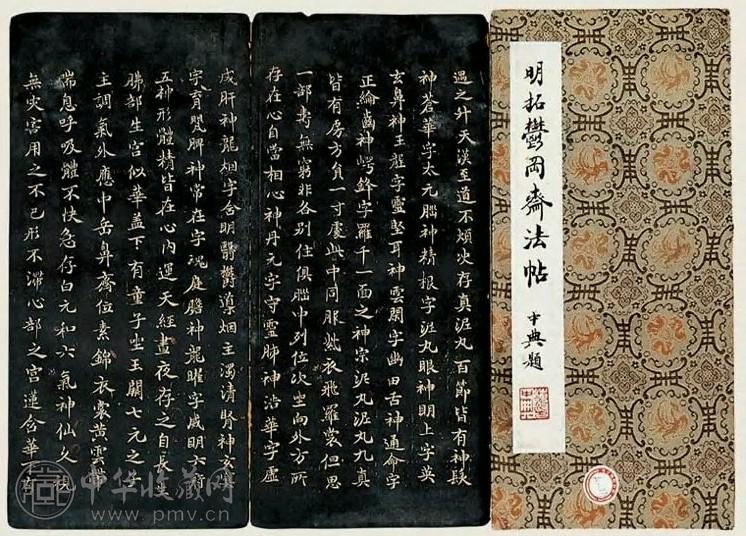 明拓鬱岡齋法帖
題
遇之升天漢至道不煩決存真泥丸百節皆有神髮
神蒼華字太元腦神精根字泥丸眼神明上字英
玄鼻神玉壟字靈堅耳神雲閑字幽田舌神通命字
正綸齒神崿鋒字羅千一面之神宗泥丸泥丸九真
皆有房方負一寸處此中同服紫衣飛羅裳但思
一部壽無窮非各別住俱腦中列位次坐向外方所
存在心自當相心神丹元字守靈肺神浩華字虛
成肝神龍烟字含明翳鬱導烟主濁清腎神玄冥
字育嬰脾神常在字魂庭膽神龍曜字威明六府
五神形體精皆在心內運天經晝夜存之自長生
肺部生宮似華蓋下有童子坐玉闕七元之子
主調氣外應中岳鼻齊位素錦衣裳黃雲帶
喘息呼吸體不快急存白元和六氣神仙久視
無災害用之不已形不滯心部之宮蓮含華
中华收藏网
www.pmv.cn